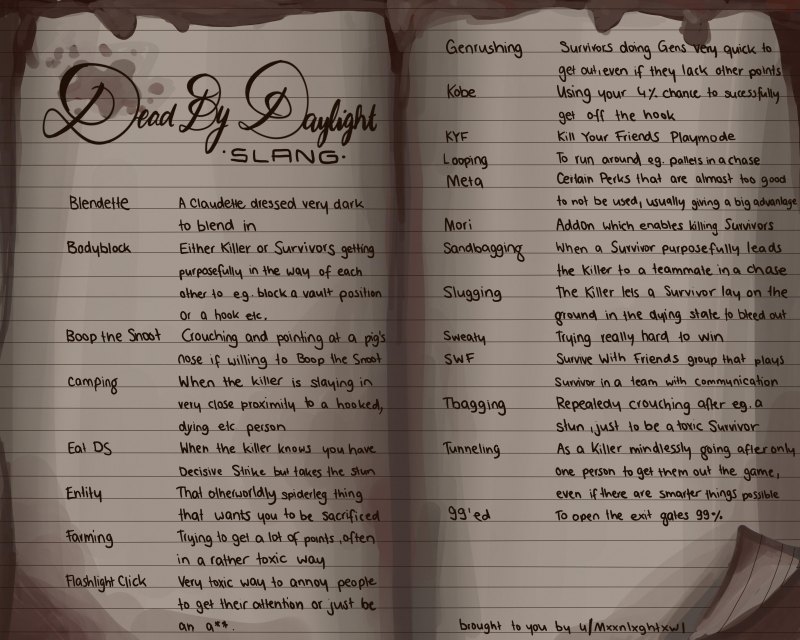 Dead By Daylight
·SLANG·
Blendette A Claudette dressed very dark
to blend in
Bodyblock Either Killer or Survivors getting
purposefully in the way of each
other to eg. block a vault position
or a hook etc.
Boop the Snoot Crouching and pointing at a pig's
nose if willing to Boop the Snoot
Camping When the killer is staying in
very close proximity to a hooked,
dying etc person
Eat DS When the killer knows you have
Decisive Strike but takes the stun
Entity That otherworldly spiderleg thing
that wants you to be sacrificed
Farming Trying to get a lot of points, often
in a rather toxic way
Flashlight Click Very toxic way to annoy people
to get their attention or just be
an a**.
Genrushing Survivors doing Gens very quick to
get out, even if they lack other points
Kobe Using your 4% chance to sucessfully
get off the hook
KYF Kill Your Friends Playmode
Looping To run around eg. pallets in a chase
Meta Certain Perks that are almost too good
to not be used, usually giving a big advantage
Mori Addon which enables killing Survivors
Sandbagging When a Survivor purposefully leads
the Killer to a teammate in a chase
Slugging The Killer lets a Survivor lay on the
ground in the dying state to bleed out
Sweaty Trying really hard to win
SWF Survive With Friends group that plays
Survivor in a team with communication
Tbagging Repealedy crouching after eg. a
stun, just to be a toxic Survivor
Tunneling As a Killer mindlessly going after only
one person to get them out the game,
even if there are smarter things possible
99'ed To open the exit gates 99%
brought to you by u/Mxxnlxghtxwl